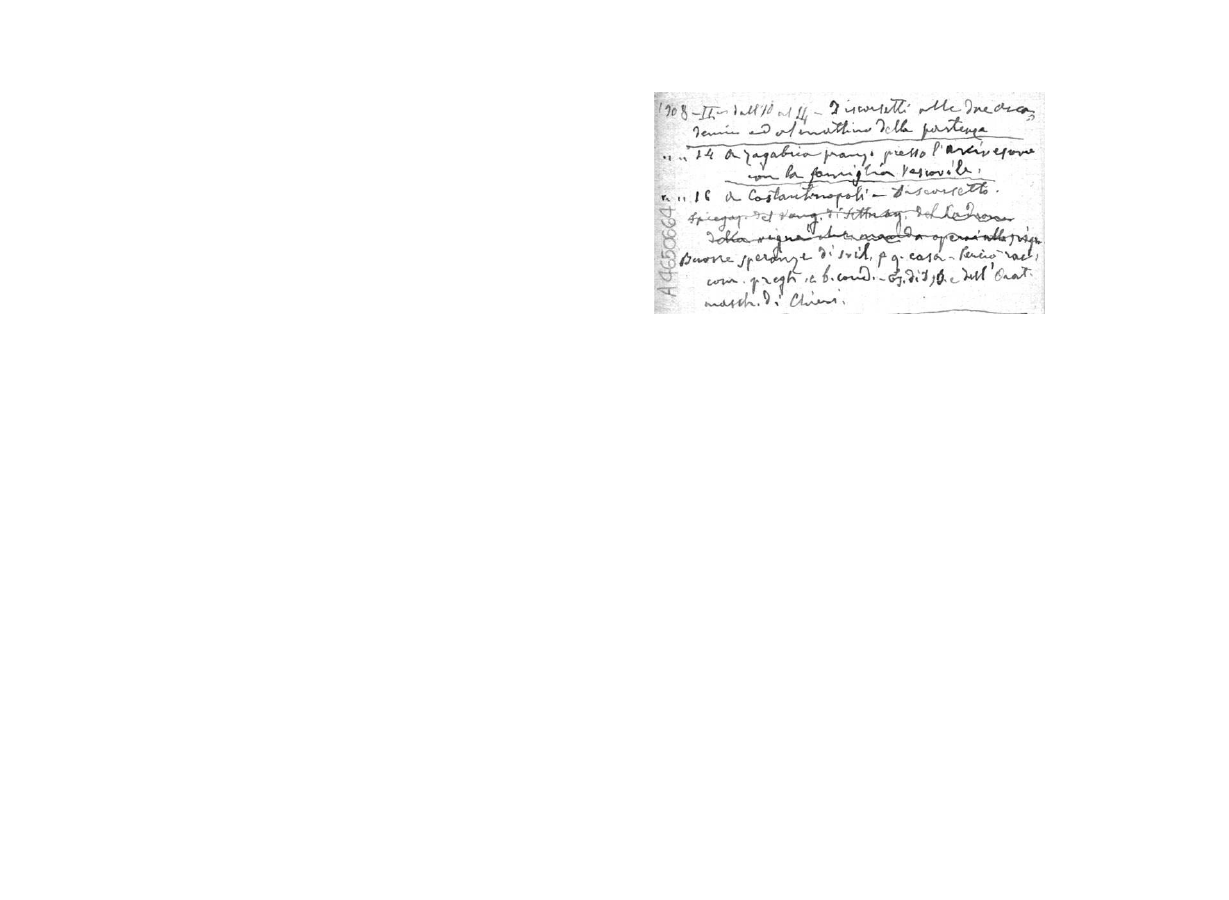 1908 - II - dall'10 al 14 - Discorsetti alle due acca=
demie ed al mattino della partenza
" " 14 a Zagabria pranzo presso l'Arcivescovo
con la famiglia Vescovile.
" " 16 a Costantinopoli - Discorsetto.
Spiegaz. del Vang. di Settuag. del Padrone
della vigna che manda operai alla vigna
Buone speranze di svil. p q. casa - Perciò racc.
com. pregh. e b. cond. - Es. di D. B. e dell'Orat.
masch. di Chieri.
A4650664